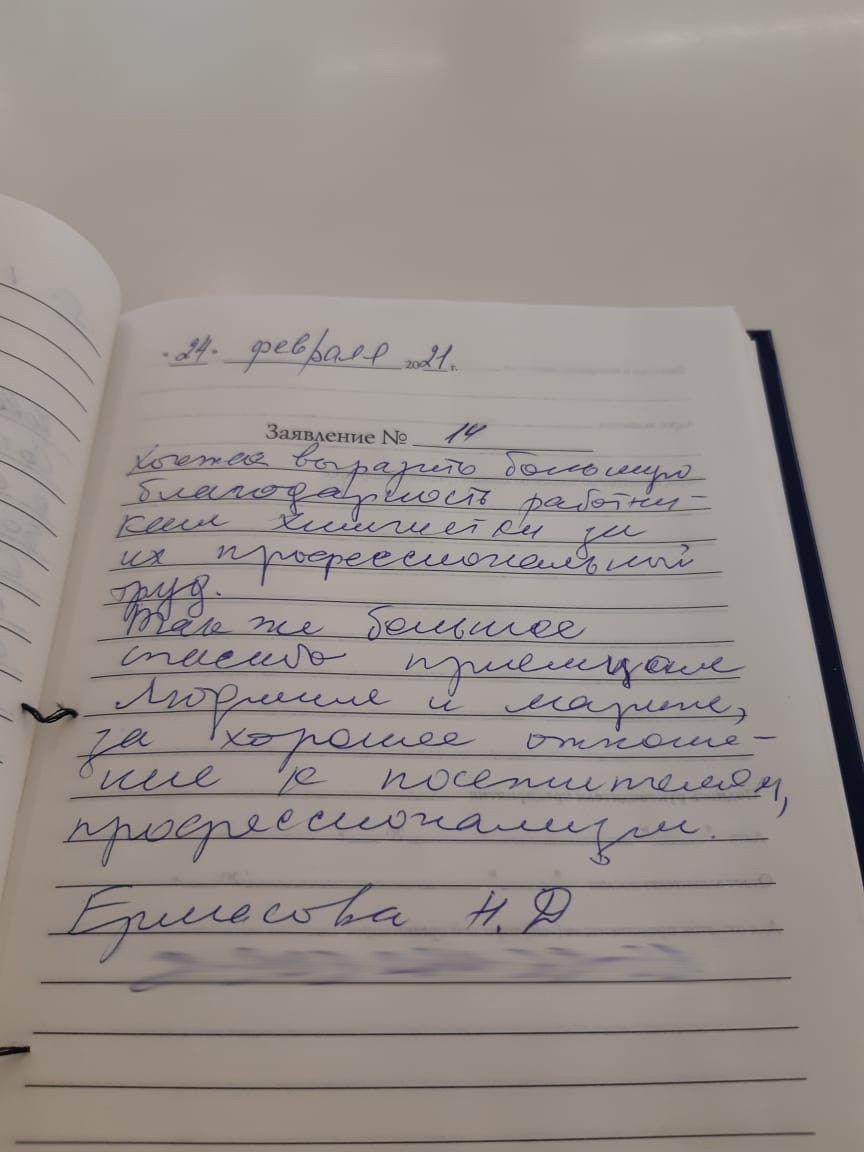 "24" февраля 2021 г.
Заявление № 14
Хочется выразить большую
благодарность работни-
кам химчистки за
их профессиональный
труд.
Так же большое
спасибо приемщицам
Людмиле и Марине,
за хорошее отноше-
ние к посетителям,
профессионализм.
Ермасова Н.Д